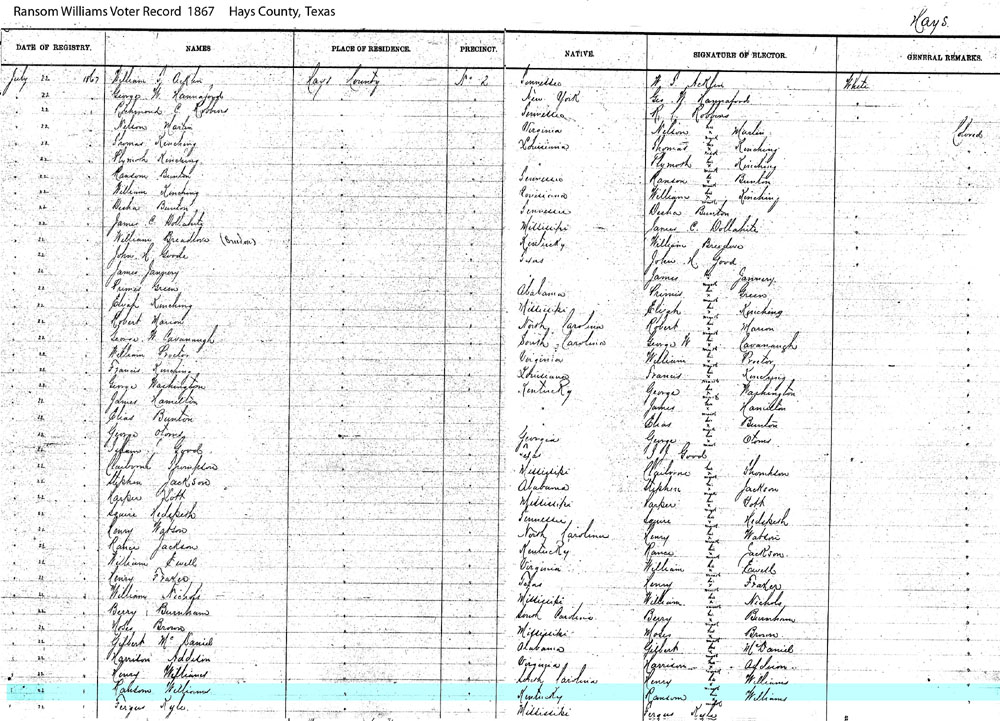 Ransom Williams Voter Record 1867 Hays County, Texas
Hays.
DATE OF REGISTRY. NAMES PLACE OF RESIDENCE. PRECINCT. NATIVE. SIGNATURE OF ELECTOR. GENERAL REMARKS.
July 22 1867 William J. Acklin Hays County No 2 Tennessee W J Acklin White
22 George W. Hannaford New York Geo W Hannaford
22 Richmond C Robbins Tennessee R C Robbins
22 Nelson Martin Virginia Nelson Martin Colored
22 Thomas Kinching Louisiana Thomas Kinching
22 Plymoth Kinching Plymoth Kinching
22 Ransom Bunton Tennessee Ranson Bunton
22 William Kinching Louisiana William Kinching
22 Desha Bunton Tennessee Desha Bunton
22 James C. Dollahite Missisiki James C. Dollahite
22 William Breedlove Kentucky William
22 John H. Goode Texas John H Good
22 James January James January
22 Primus Green Alabama Primis Green
22 Elijah Kinching Missisiki Elijah Kinching
22 Robert Marion North Carolina Robert Marion
22 George W. Cavanaugh South Carolina George W Cavanaugh
22 William Proctor Virginia William Proctor
22 Francis Kinching Louisiana Francis Kinching
22 George Washington Kentucky George Washington
22 James Hamilton James Hamilton
22 Elias Bunton Elias Bunton
22 George Georgia George
22 Good Texas Good
22 Claibourne Thompson Missisiki Claiborne Thomkson
22 Stephen Jackson Alabama Stephen Jackson
22 Parker Missisiki Parker
22 Squire Hedspeth Tennessee Squire Hedspeth
22 Henry Watson North Carolina Henry Watson
22 Rance Jackson Kentucky Rance Jackson
22 William Ewell Virginia William Ewell
22 Henry Frazer Texas Henry Frazer
22 William Nichols Missisiki William Nichols
22 Berry Burnham South Carolina Berry Burnham
22 Moses Brown Missisiki Moses Brown
22 Gilbert McDaniel Alabama Gilbert McDaniel
22 Harrison Addison Virginia Harrison Addison
22 Henry Williams South Carolina Henry Williams
22 Ransom Williams Kentucky Ransom Williams
22 Fergus Kyle Missisiki Fergus Kyle